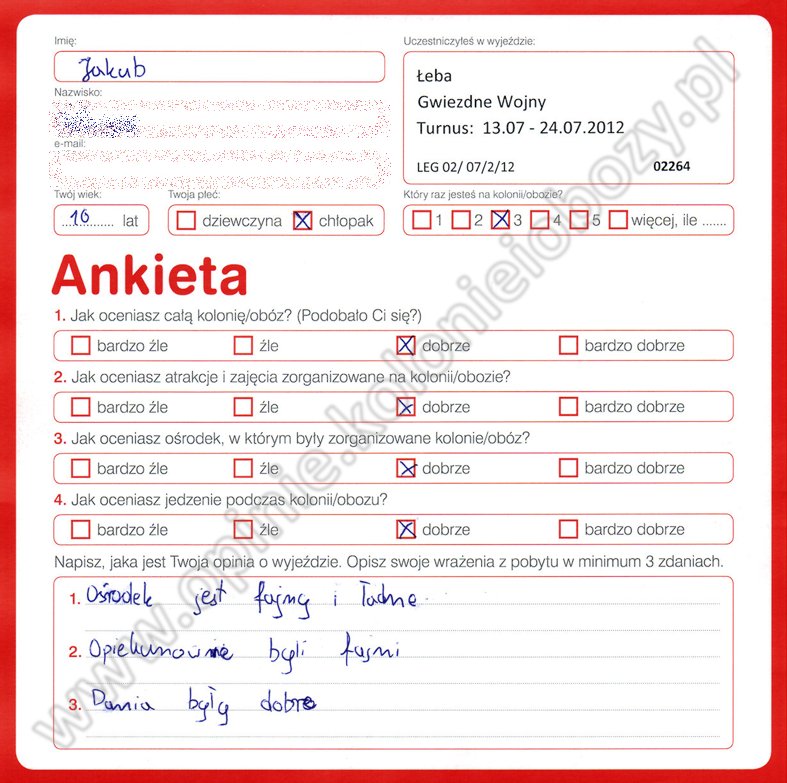 Imię:
Jakub
Nazwisko:
e-mail:
Uczestniczyłeś w wyjeździe:
Łeba
Gwiezdne Wojny
Turnus: 13.07 - 24.07.2012
LEG 02/ 07/2/12 02264
Twój wiek:
10 lat
Twoja płeć:
dziewczyna chłopak
Który raz jesteś na kolonii/obozie?
1 2 3 4 5 więcej, ile .......
Ankieta
1. Jak oceniasz całą kolonię/obóz? (Podobało Ci się?)
bardzo źle źle dobrze bardzo dobrze
2. Jak oceniasz atrakcje i zajęcia zorganizowane na kolonii/obozie?
bardzo źle źle dobrze bardzo dobrze
3. Jak oceniasz ośrodek, w którym były zorganizowane kolonie/obóz?
bardzo źle źle dobrze bardzo dobrze
4. Jak oceniasz jedzenie podczas kolonii/obozu?
bardzo źle źle dobrze bardzo dobrze
Napisz, jaka jest Twoja opinia o wyjeździe. Opisz swoje wrażenia z pobytu w minimum 3 zdaniach.
1. Ośrodek jest fajny i ładne
2. Opiekunowie byli fajni
3. Dania były dobre
www.opinie.kolonieiobozy.pl